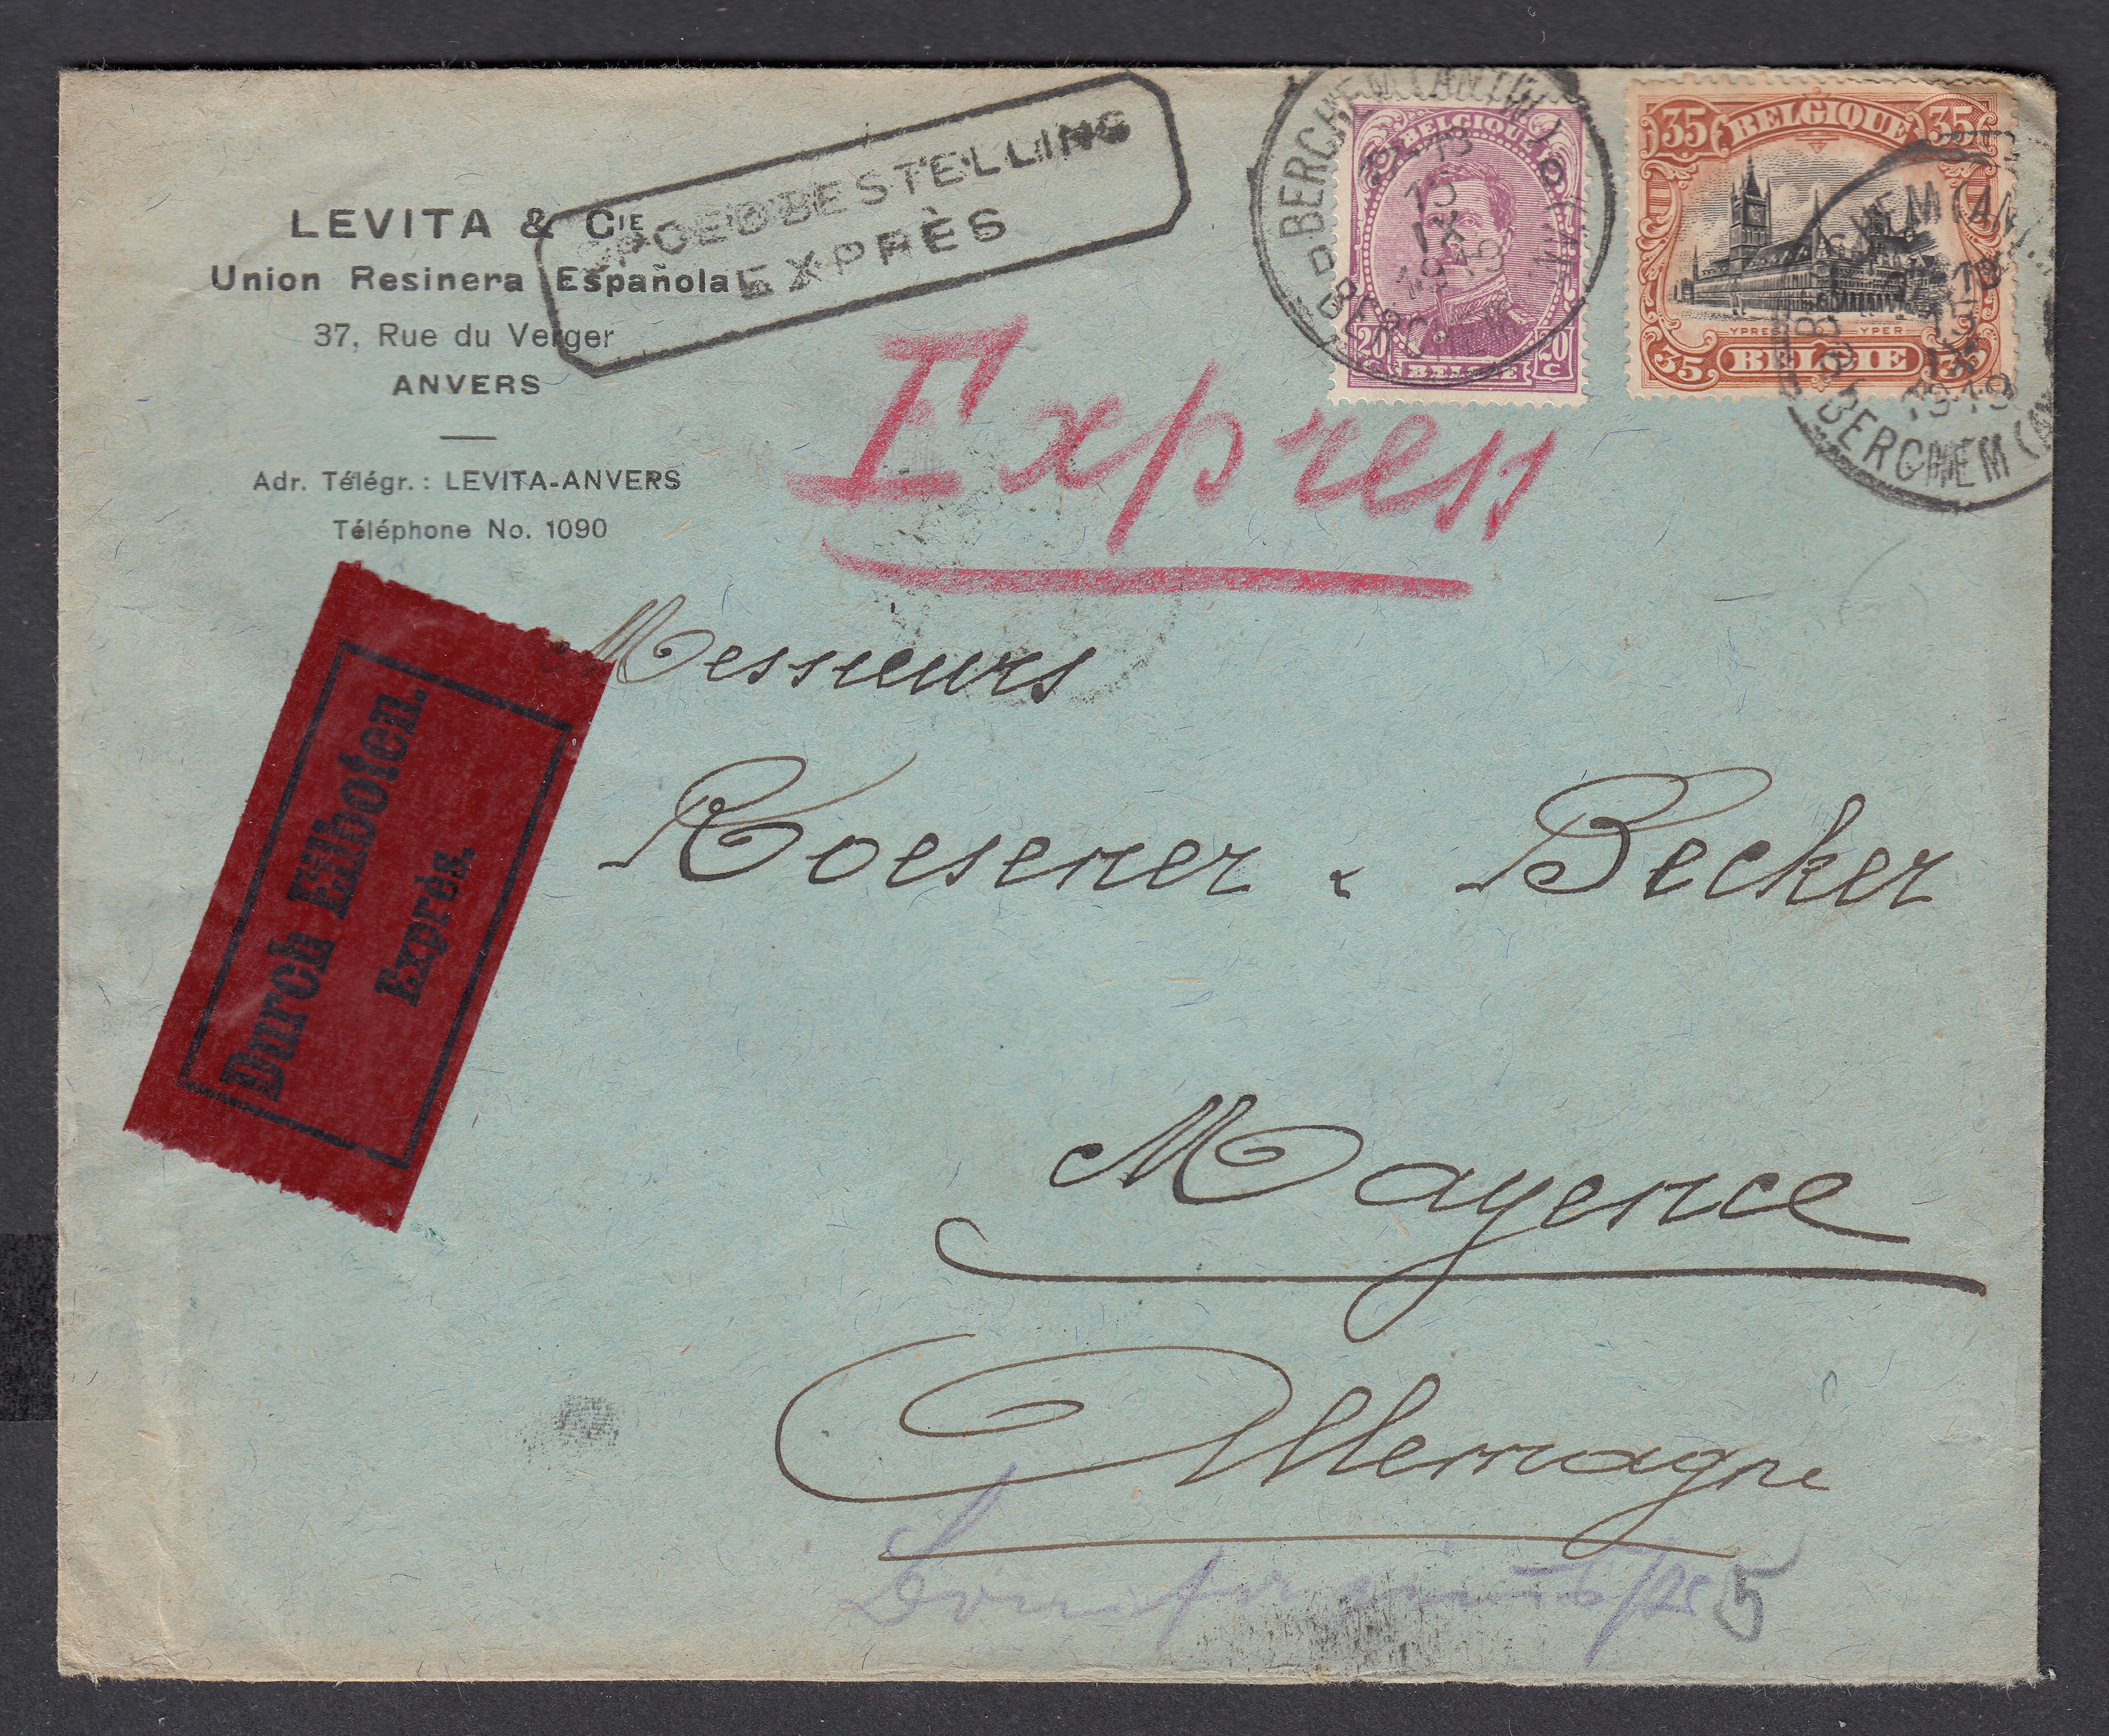 LEVITA & CIE
Union Resinera Española
37, Rue du Verger
ANVERS
Adr. Télégr.: LEVITA-ANVERS
Téléphone No. 1090
SPOEDBESTELLING
EXPRÈS
BERCHEM (ANTW.) 1B
15
IX
1919
BERCHEM
BELGIQUE
20 20
C C
BELGIE
35 BELGIQUE 35
YPRES YPER
35 BELGIE 35
15
IX
1919
BERCHEM (A
Express
Durch Eilboten.
Exprès.
Messieurs
Koesener & Becker
Mayence
Allemagne
5